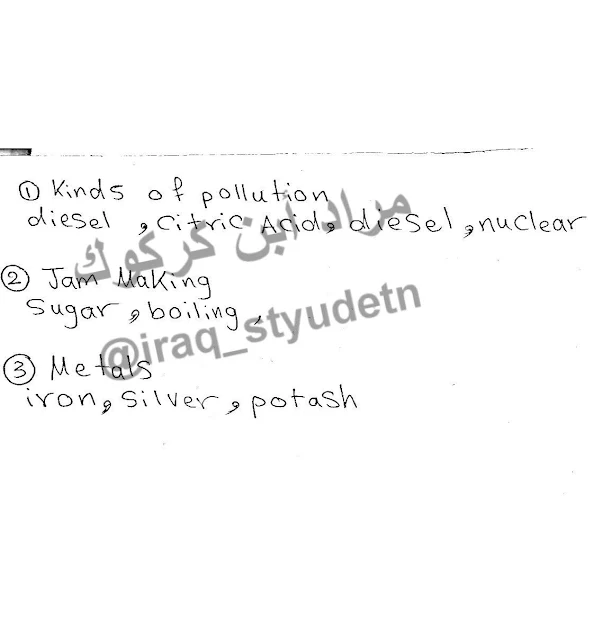 ① Kinds of pollution
diesel , Citric Acid, diesel , nuclear
② Jam Making
Sugar , boiling ,
③ Metals
iron, Silver , potash
مراد ابن كركوك
@iraq_styudetn